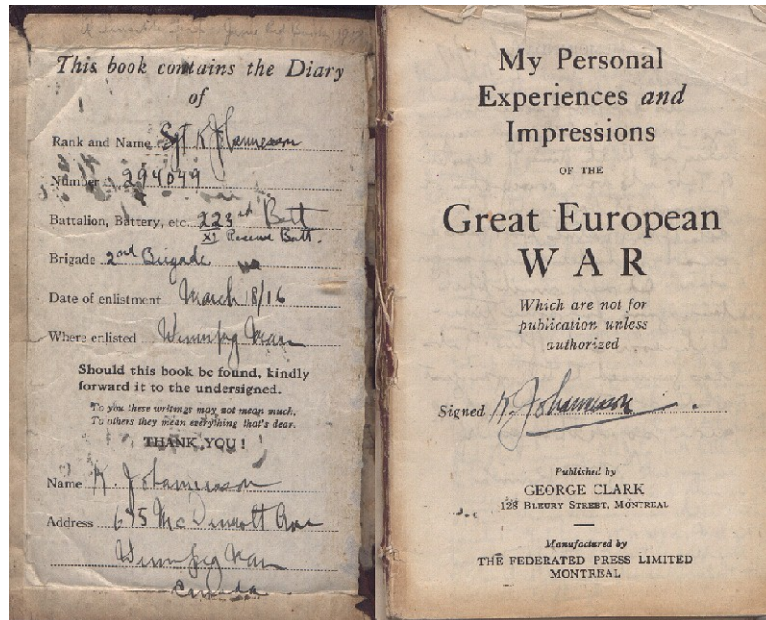 This book contains the Diary
of
Rank and Name Sgt K Johannesson
Number 294049
Battalion, Battery, etc. 223rd Batt
XI Reserve Batt.
Brigade 2nd Brigade
Date of enlistment March 18/16
Where enlisted Winnipeg Man
Should this book be found, kindly
forward it to the undersigned.
To you these writings may not mean much,
To others they mean everything that's dear.
THANK YOU!
Name K. Johannesson
Address 675 McDermott Ave
Winnipeg Man
Canada
My Personal
Experiences and
Impressions
OF THE
Great European
WAR
Which are not for
publication unless
authorized
Signed K. Johannesson
Published by
GEORGE CLARK
128 BLEURY STREET, MONTREAL
Manufactured by
THE FEDERATED PRESS LIMITED
MONTREAL